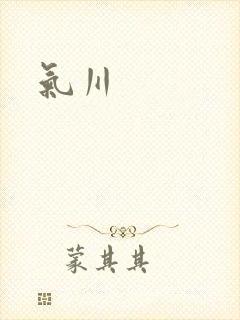 氣川
蒙其其